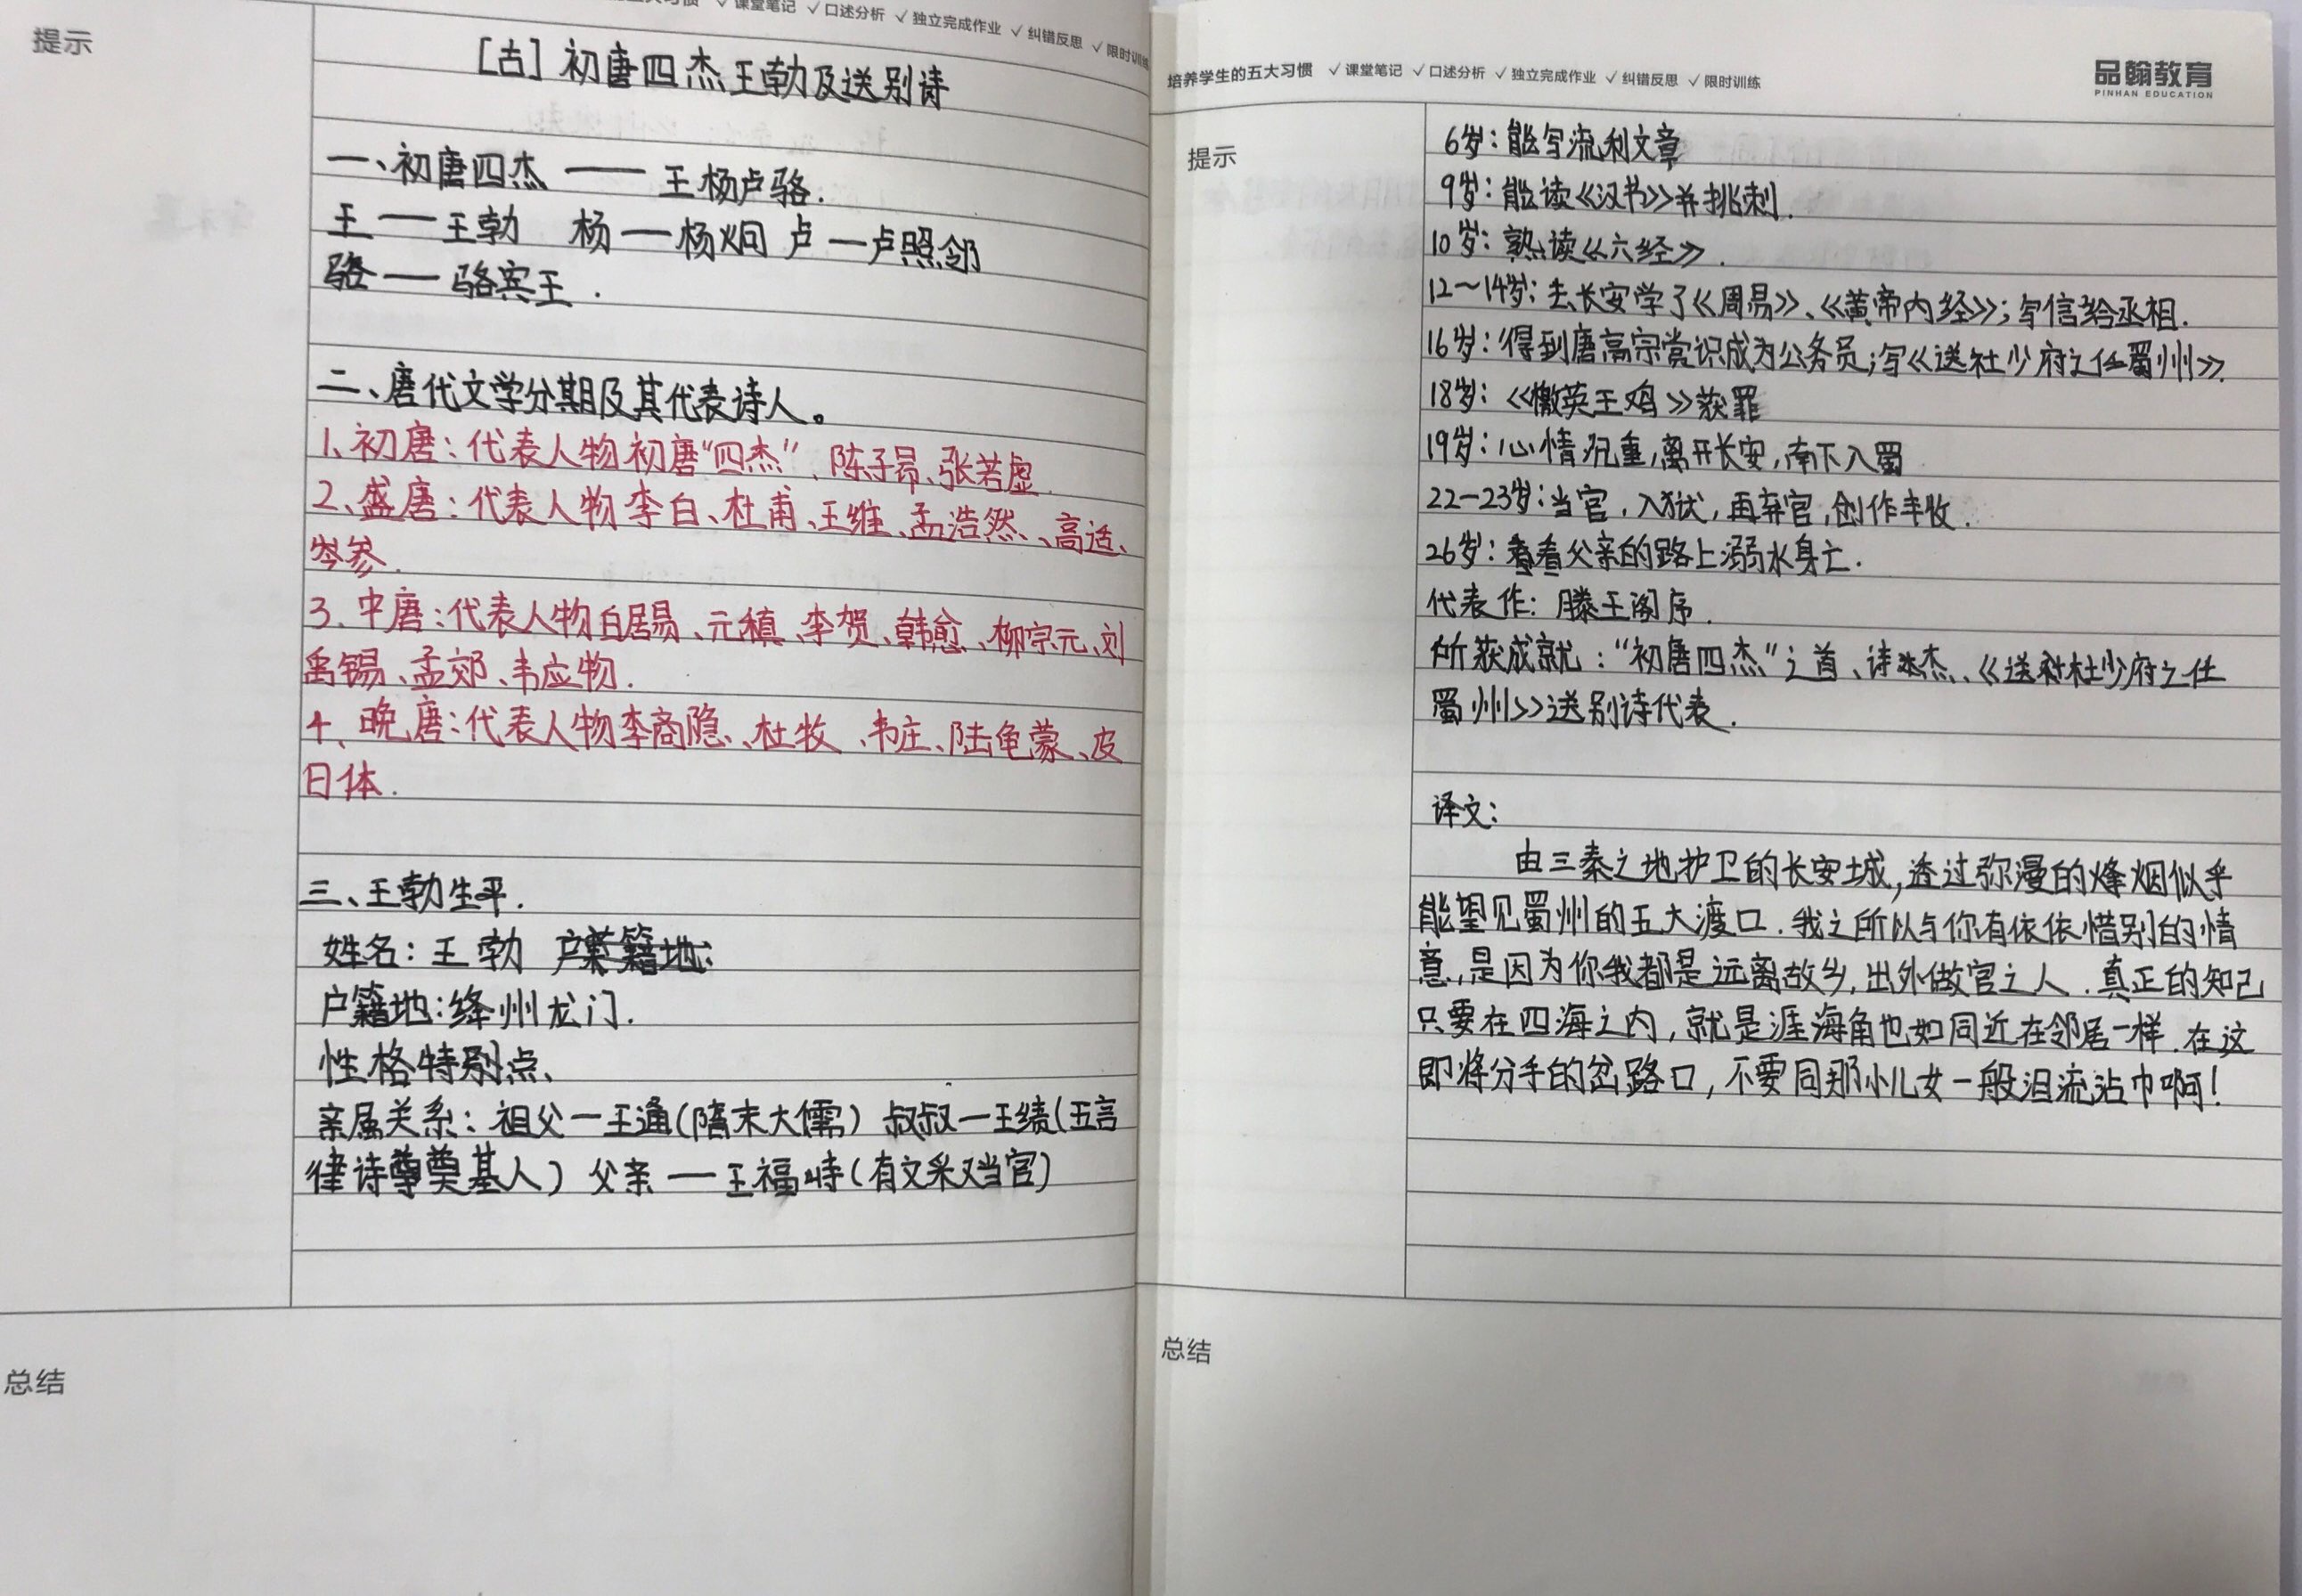 五大习惯 ✓课堂笔记 ✓口述分析 ✓独立完成作业 ✓纠错反思 ✓限时训练
提示
[古] 初唐四杰王勃及送别诗
一、初唐四杰 —— 王杨卢骆.
王 — 王勃 杨 — 杨炯 卢 — 卢照邻
骆 — 骆宾王.
二、唐代文学分期及其代表诗人。
1、初唐：代表人物初唐“四杰”、陈子昂、张若虚.
2、盛唐：代表人物李白、杜甫、王维、孟浩然、高适、
岑参.
3、中唐：代表人物白居易、元稹、李贺、韩愈、柳宗元、刘
禹锡、孟郊、韦应物.
4、晚唐：代表人物李商隐、杜牧、韦庄、陆龟蒙、皮
日体.
三、王勃生平.
姓名：王勃 户籍地：
户籍地：绛州龙门.
性格特别点、
亲属关系：祖父—王通(隋末大儒) 叔叔—王绩(五言
律诗尊奠基人) 父亲 — 王福畤(有文采又当官)
总结
培养学生的五大习惯 ✓课堂笔记 ✓口述分析 ✓独立完成作业 ✓纠错反思 ✓限时训练
品翰教育
PINHAN EDUCATION
提示
6岁：能写流利文章
9岁：能读《汉书》并挑刺.
10岁：熟读《六经》.
12～14岁：去长安学了《周易》、《黄帝内经》；写信给丞相.
16岁：得到唐高宗赏识成为公务员；写《送杜少府之任蜀州》.
18岁：《檄英王鸡》获罪
19岁：心情沉重,离开长安,南下入蜀
22—23岁：当官,入狱,再弃官,创作丰收.
26岁：看看父亲的路上溺水身亡.
代表作：滕王阁序.
所获成就：“初唐四杰”之首、诗杰、《送杜少府之任
蜀州》送别诗代表.
译文：
由三秦之地护卫的长安城,透过弥漫的烽烟似乎
能望见蜀州的五大渡口.我之所以与你有依依惜别的情
意,是因为你我都是远离故乡,出外做官之人.真正的知己
只要在四海之内,就是涯海角也如同近在邻居一样.在这
即将分手的岔路口,不要同那小儿女一般泪流沾巾啊!
总结